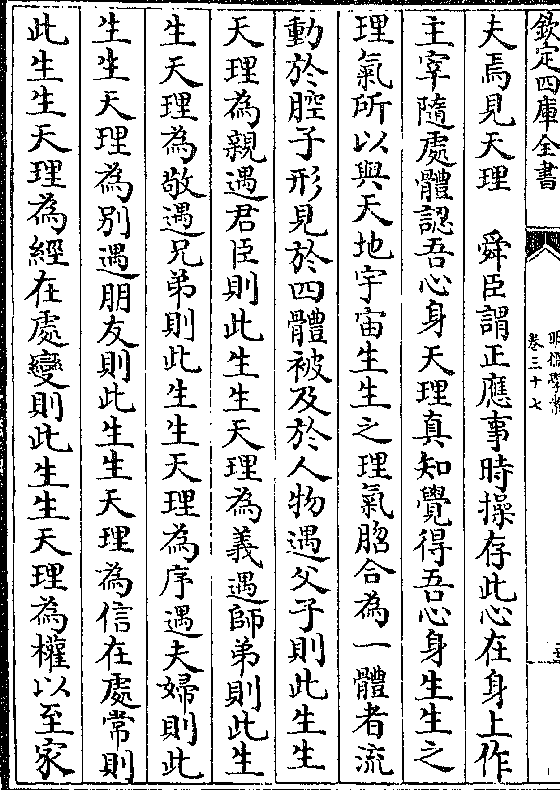 欽定四庫全書
卷三十七
夫焉見天理　舜臣謂正應事時操存此心在身上作
主宰隨處體認吾心身天理真知覺得吾心身生生之
理氣所以與天地宇宙生生之理氣脗合為一體者流
動於腔子形見於四體被及於人物遇父子則此生生
天理為親遇君臣則此生生天理為義遇師弟則此生
生天理為敬遇兄弟則此生生天理為序遇夫婦則此
生生天理為別遇朋友則此生生天理為信在處常則
此生生天理為經在處變則此生生天理為權以至家